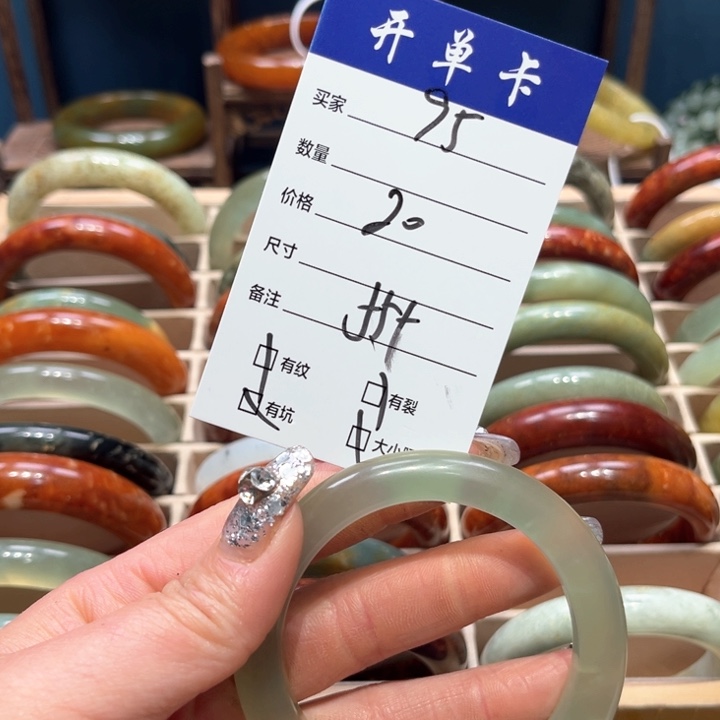 开单卡
买家 95
数量
价格 20
尺寸
备注
有纹 有裂
有坑 大小